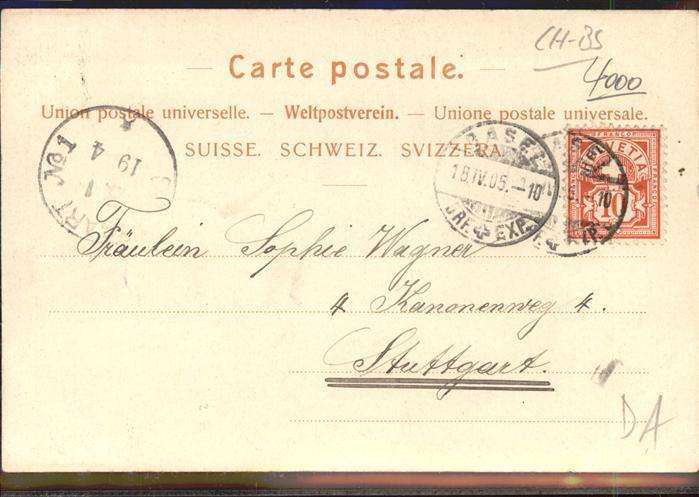 CH-BS
4000
Carte postale.
Union postale universelle. — Weltpostverein. — Unione postale universale.
SUISSE. SCHWEIZ. SVIZZERA.
ART No 1
19
4
BASEL
18.IV.05.–10
BRF. EXP.
FRANCO
HELVETIA
10
Fräulein Sophie Wagner
4 Kanonenweg 4.
Stuttgart.
DA